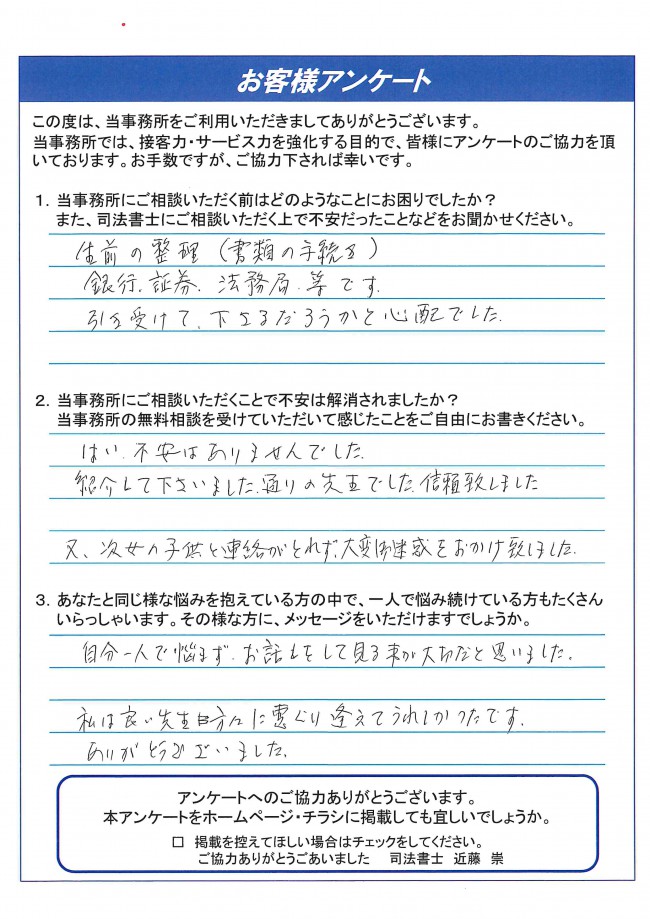 お客様アンケート
この度は、当事務所をご利用いただきましてありがとうございます。
当事務所では、接客力・サービス力を強化する目的で、皆様にアンケートのご協力を頂
いております。お手数ですが、ご協力下されば幸いです。
1．当事務所にご相談いただく前はどのようなことにお困りでしたか？
また、司法書士にご相談いただく上で不安だったことなどをお聞かせください。
生前の整理（書類の手続き）
銀行、証券、法務局、等です。
引き受けて、下さるだろうかと心配でした。
2．当事務所にご相談いただくことで不安は解消されましたか？
当事務所の無料相談を受けていただいて感じたことをご自由にお書きください。
はい、不安はありませんでした。
紹介して下さいました。通りの先生でした。信頼致しました
又、次女の子供と連絡がとれず、大変御迷惑をおかけ致しました。
3．あなたと同じ様な悩みを抱えている方の中で、一人で悩み続けている方もたくさん
いらっしゃいます。その様な方に、メッセージをいただけますでしょうか。
自分一人で悩まず、お話しをして見る事が大切だと思いました。
私は良い先生方に恵ぐり逢えてうれしかったです。
ありがとうございました。
アンケートへのご協力ありがとうございます。
本アンケートをホームページ・チラシに掲載しても宜しいでしょうか。
□ 掲載を控えてほしい場合はチェックをしてください。
ご協力ありがとうごあいました 司法書士 近藤 崇